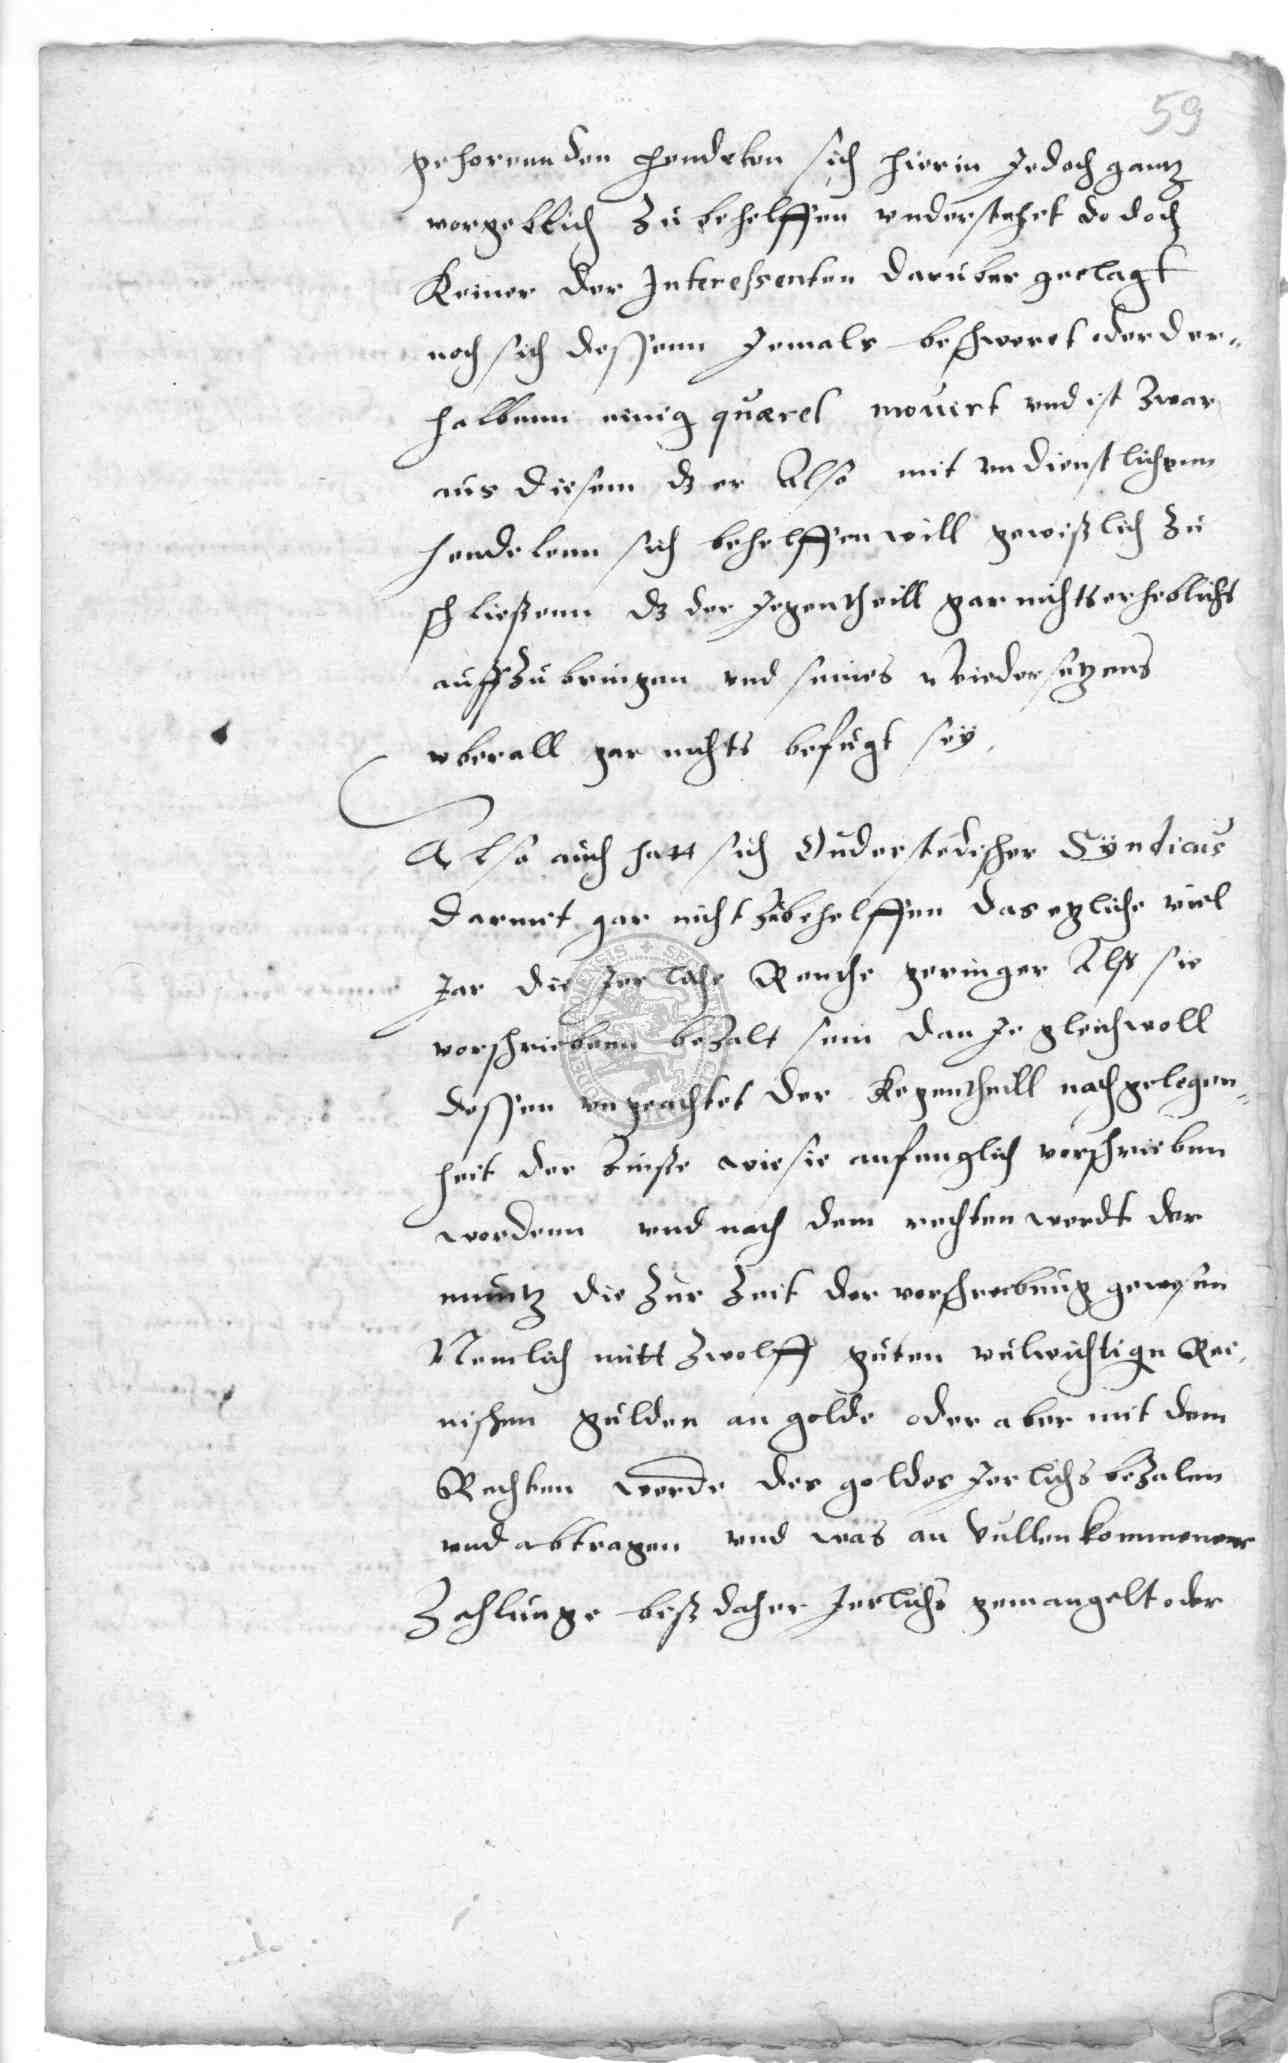 59
gehorennden hendelen sich hierin Jedoch gantz
vorgeblich zu behelffen understehet do doch
Keiner der Interessenten daruber geclagt
noch sich dessenn Jemals beschweret oder der-
halbenn einig quærel mouirt vnd ist zwar
aus diesem dz er Also mit vndienstlichenn
hendelenn sich behelffen will gewißlich zu
schließenn dz der Jegentheill gar nichts erheblichs
auffzubringen vnd seines Wiedersetzens
vberall gar nichts befugt seÿ,
Also auch hatt sich Duderstedischer Sÿndicus
darmit gar nicht zubehelffen das etzliche viel
Jar die Jerliche Renthe geringer Alß sie
vorschriebenn bezalt sein dan Je gleichwoll
dessen vngeachtet der Kegentheill nach gelegen-
heit der Zinße wie sie anfenglich vorschrieben
wordenn vnd nach dem rechten werdt der
muntz die zur Zeit der vorschreibung gewesen
Nemlich mitt zwolff guten vulwichtigen Rei-
nischen gulden an golde oder aber mit dem
Rechten werde des goldes Jerlichs bezalen
vnd abtragen vnd was an Vullenkommener
Zahlunge beß daher Jerlichs gemangelt oder